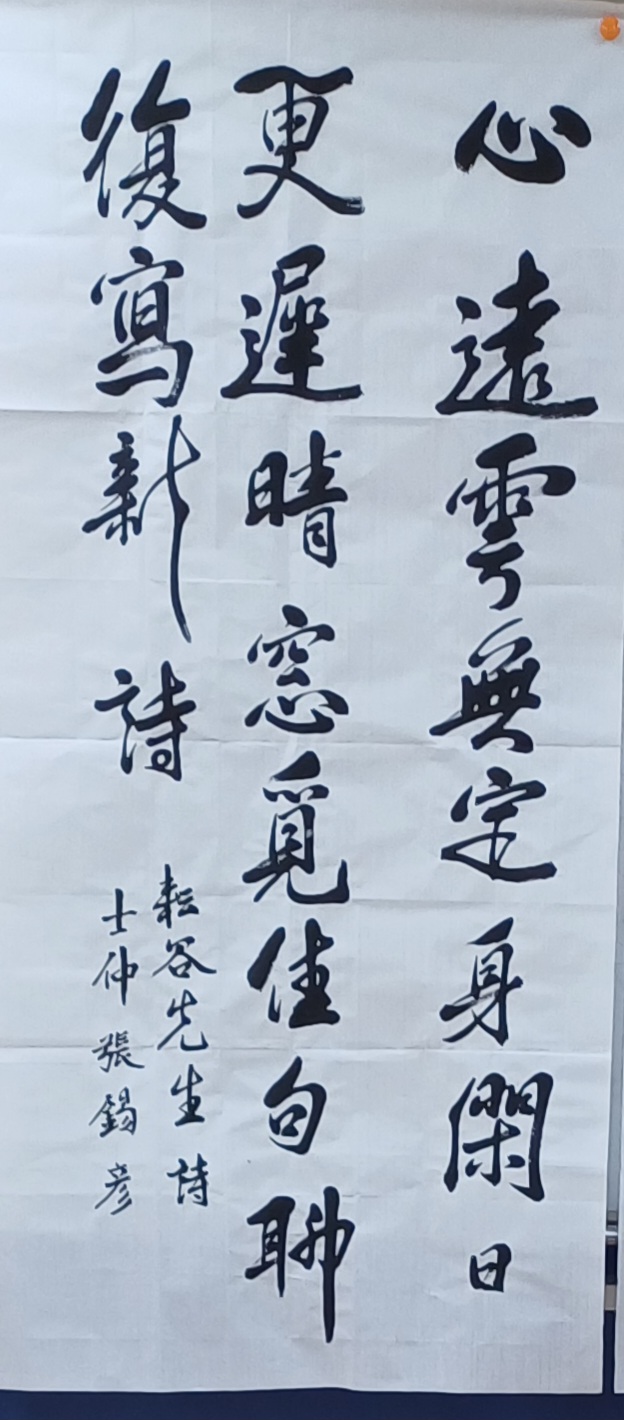 心遠雲無定身閑日
更遲晴窓覓佳句聊
復寫新詩
耘谷先生詩
士仲張錫彦